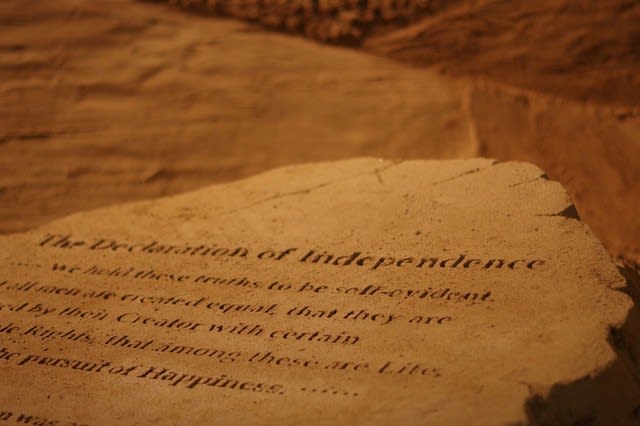 The Declaration of Independence
..... we hold these truths to be self-evident.
all men are created equal, that they are
by their Creator with certain
Rights, that among these are Life,
the pursuit of Happiness. ......
was